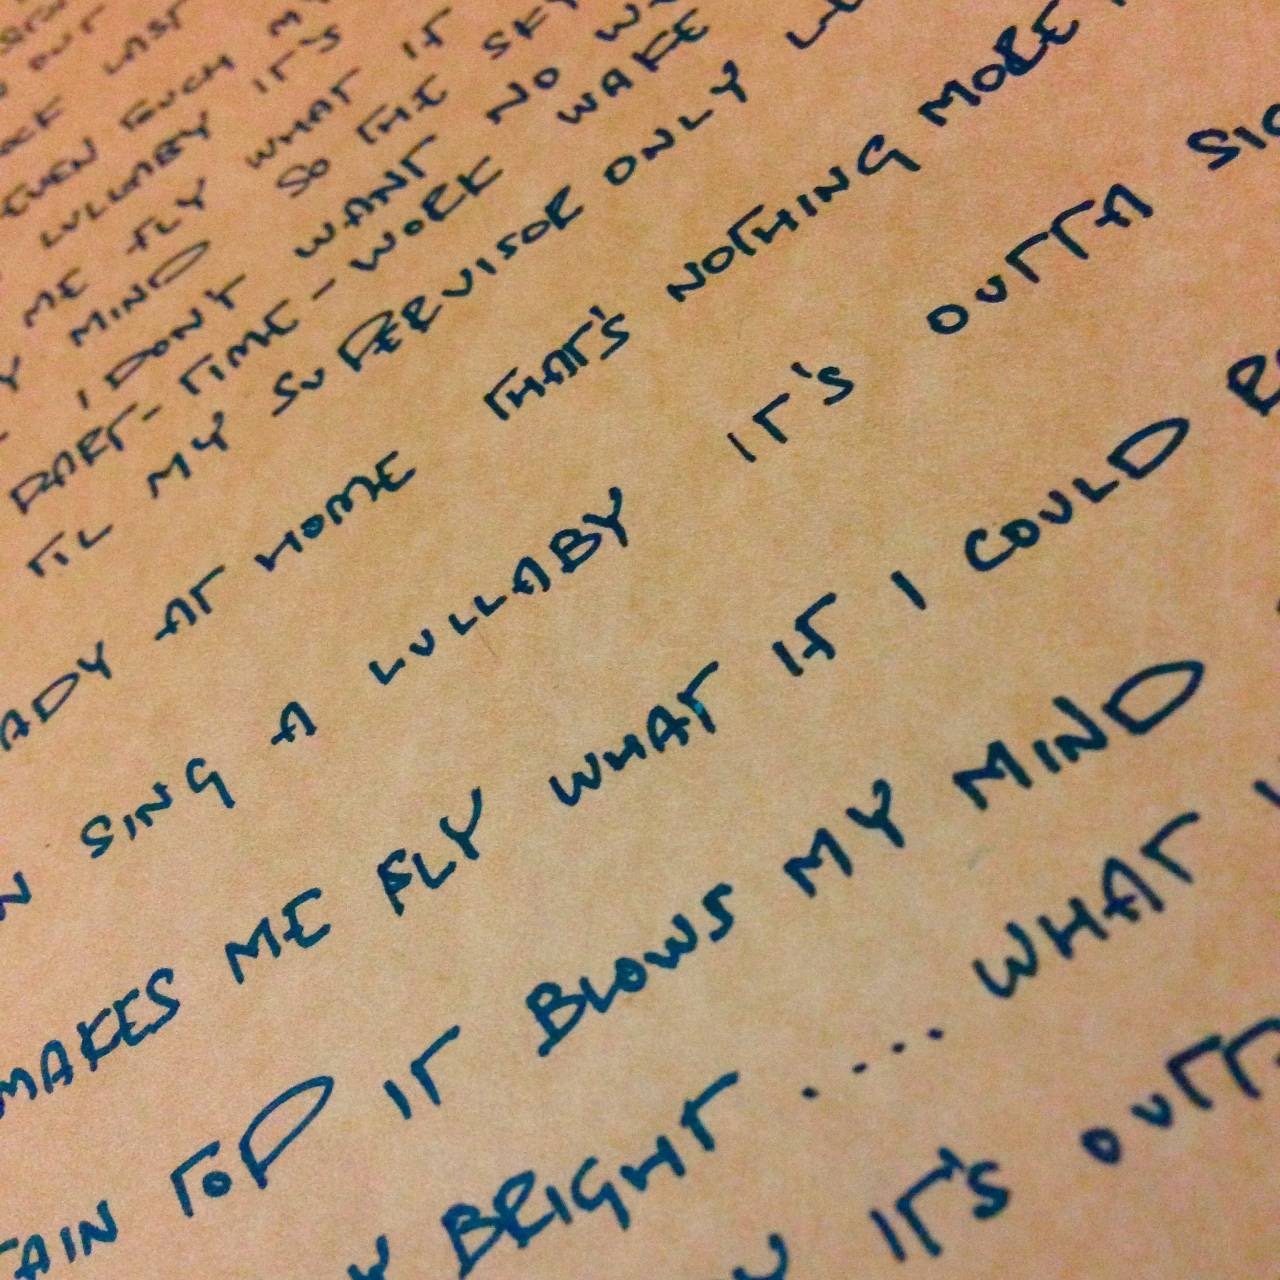 OUT
LAST
EVEN TOUCH MY
LULLABY IT'S
ME FLY WHAT IF
MIND SO THE SKY
I DON'T WANT NO
PART-TIME-WORK WAKE
TIL MY SUPERVISOR ONLY
AT HOME THAT'S NOTHING MORE
SING A LULLABY IT'S OUTTA
MAKES ME FLY WHAT IF I COULD
TOP IT BLOWS MY MIND
BRIGHT .... WHAT
IT'S